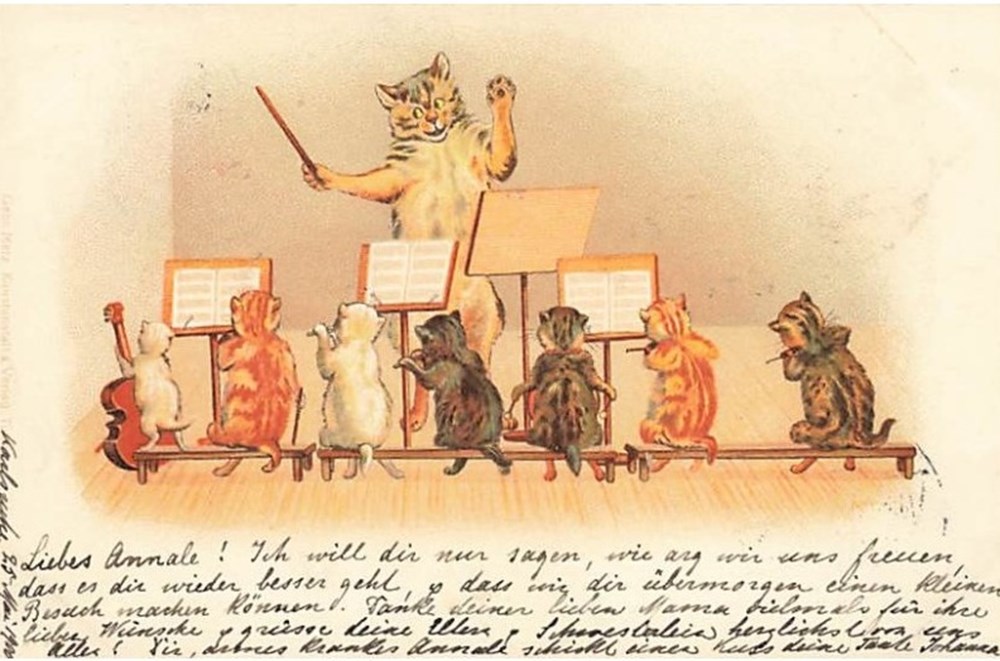 Liebes Annale! Ich will dir nur sagen, wie arg wir uns freuen,
dass es dir wieder besser geht, & dass wir dir übermorgen einen kleinen
Besuch machen können. Danke deiner lieben Mama vielmals für ihre
lieben Wünsche & grüsse deine Eltern & Schwesterlein herzlichst von uns
Allen! Dir, armes krankes Annale schickt einen Kuss deine Tante Johanna
Karlsruhe 25. Mai